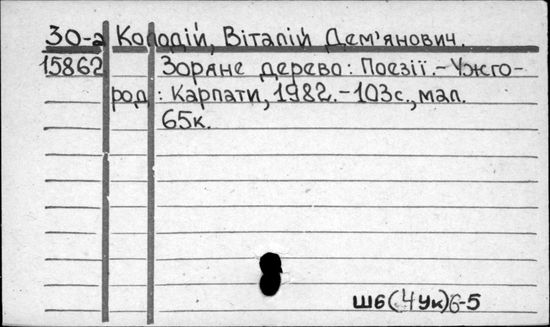 30-а Колодій, Віталій Дем'янович.
15862 Зоряне дерево: Поезії.-Ужго-
род: Карпати, 1982.-103с., мал.
65к.
Ш6(4Ук)6-5